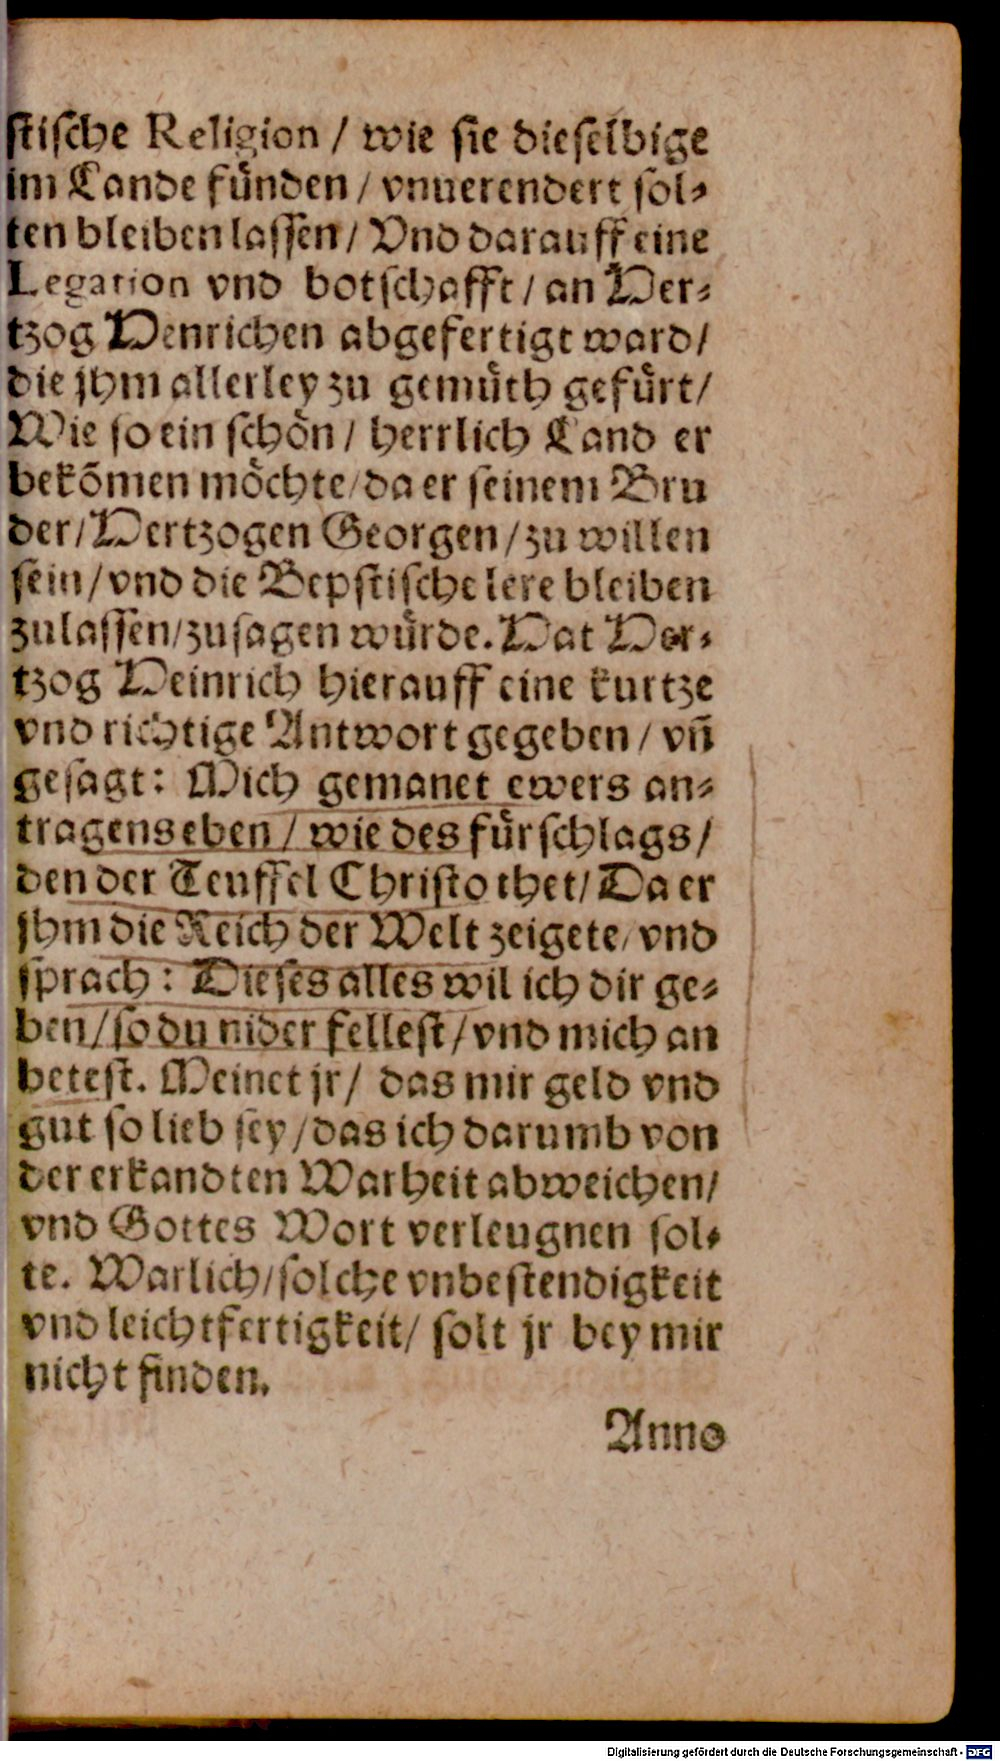 ſtiſche Religion / wie ſie dieſelbige
im Lande fuͤnden / vnuerendert ſol⸗
ten bleiben laſſen / Vnd darauff eine
Legation vnd botſchafft / an Her⸗
tzog Henrichen abgefertigt ward /
die jhm allerley zu gemuͤth gefuͤrt /
Wie ſo ein ſchoͤn / herrlich Land er
bekõmen moͤchte / da er ſeinem Bru
der / Hertzogen Georgen / zu willen
ſein / vnd die Bepſtiſche lere bleiben
zulaſſen / zuſagen wuͤrde. Hat Her⸗
tzog Heinrich hierauff eine kurtze
vnd richtige Antwort gegeben / vñ
geſagt: Mich gemanet ewers an⸗
tragens eben / wie des fuͤrſchlags /
den der Teuffel Chriſto thet / Da er
jhm die Reich der Welt zeigete / vnd
ſprach: Dieſes alles wil ich dir ge⸗
ben / ſo du nider felleſt / vnd mich an
beteſt. Meinet jr / das mir geld vnd
gut ſo lieb ſey / das ich darumb von
der erkandten Warheit abweichen /
vnd Gottes Wort verleugnen ſol⸗
te. Warlich / ſolche vnbeſtendigkeit
vnd leichtfertigkeit / ſolt jr bey mir
nicht finden.
Anno
Digitalisierung gefördert durch die Deutsche Forschungsgemeinschaft - DFG